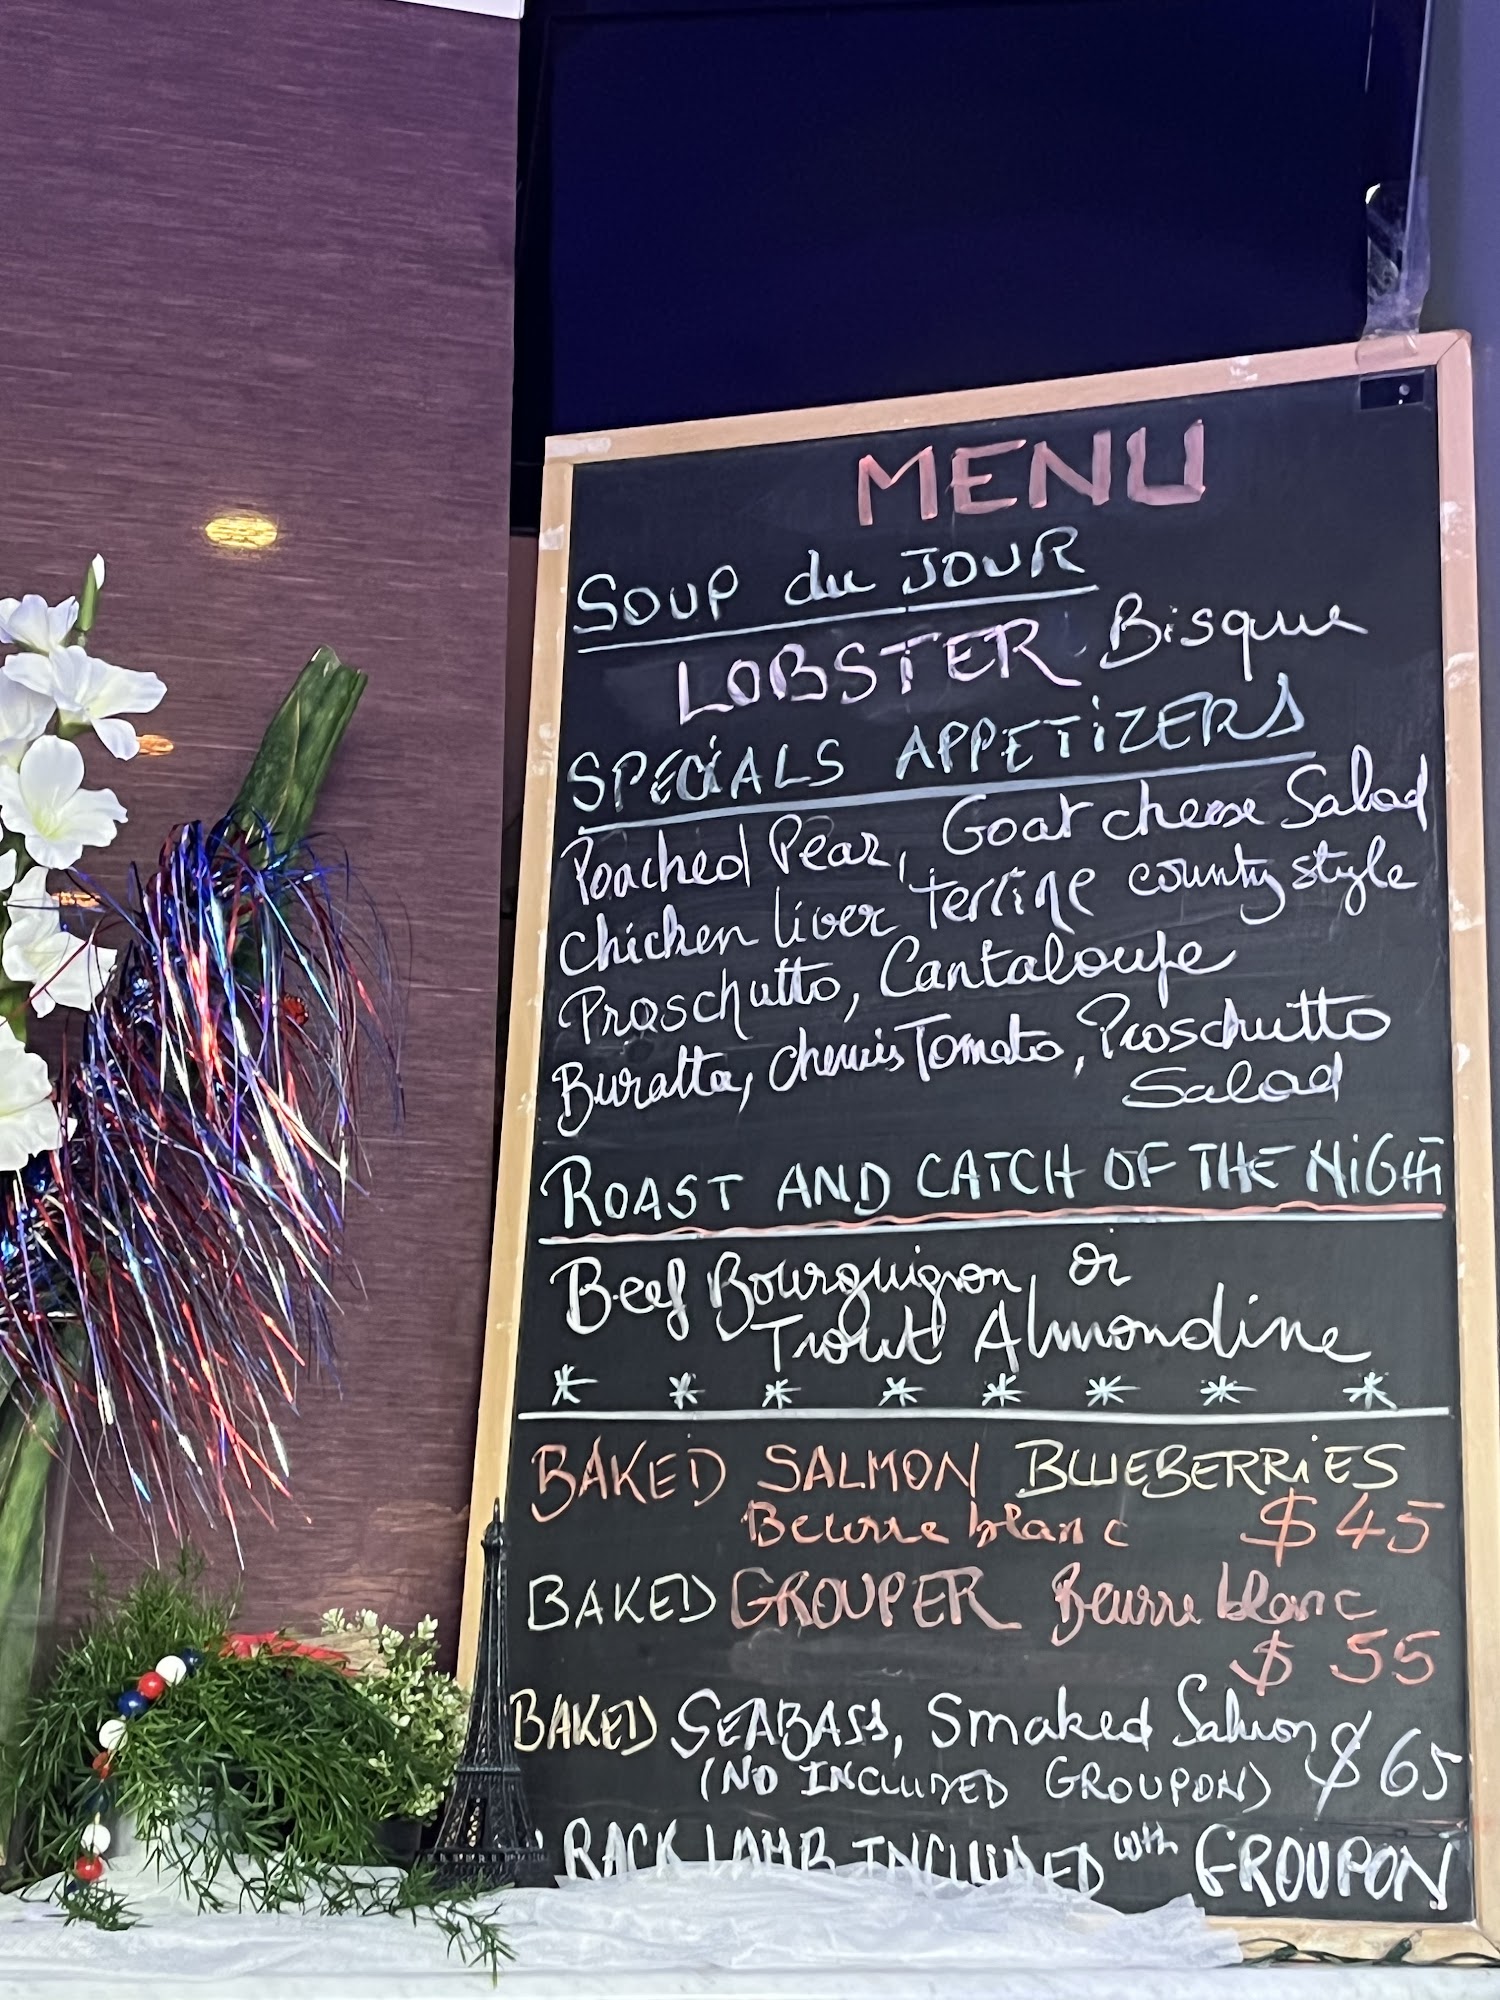 MENU
SOUP du JOUR
LOBSTER Bisque
SPECIALS APPETIZERS
Poached Pear, Goat cheese Salad
chicken liver terrine country style
Proschutto, Cantaloupe
Buratta, cherris Tomato, Proschutto
Salad
ROAST AND CATCH OF THE NIGHT
Beef Bourguignon or
Trout Almondine
* * * * * * * *
BAKED SALMON BLUEBERRIES
Beurre blanc $45
BAKED GROUPER Beurre blanc
$55
BAKED SEABASS, Smoked Salmon $65
(NO INCLUDED GROUPON)
RACK LAMB INCLUDED with GROUPON